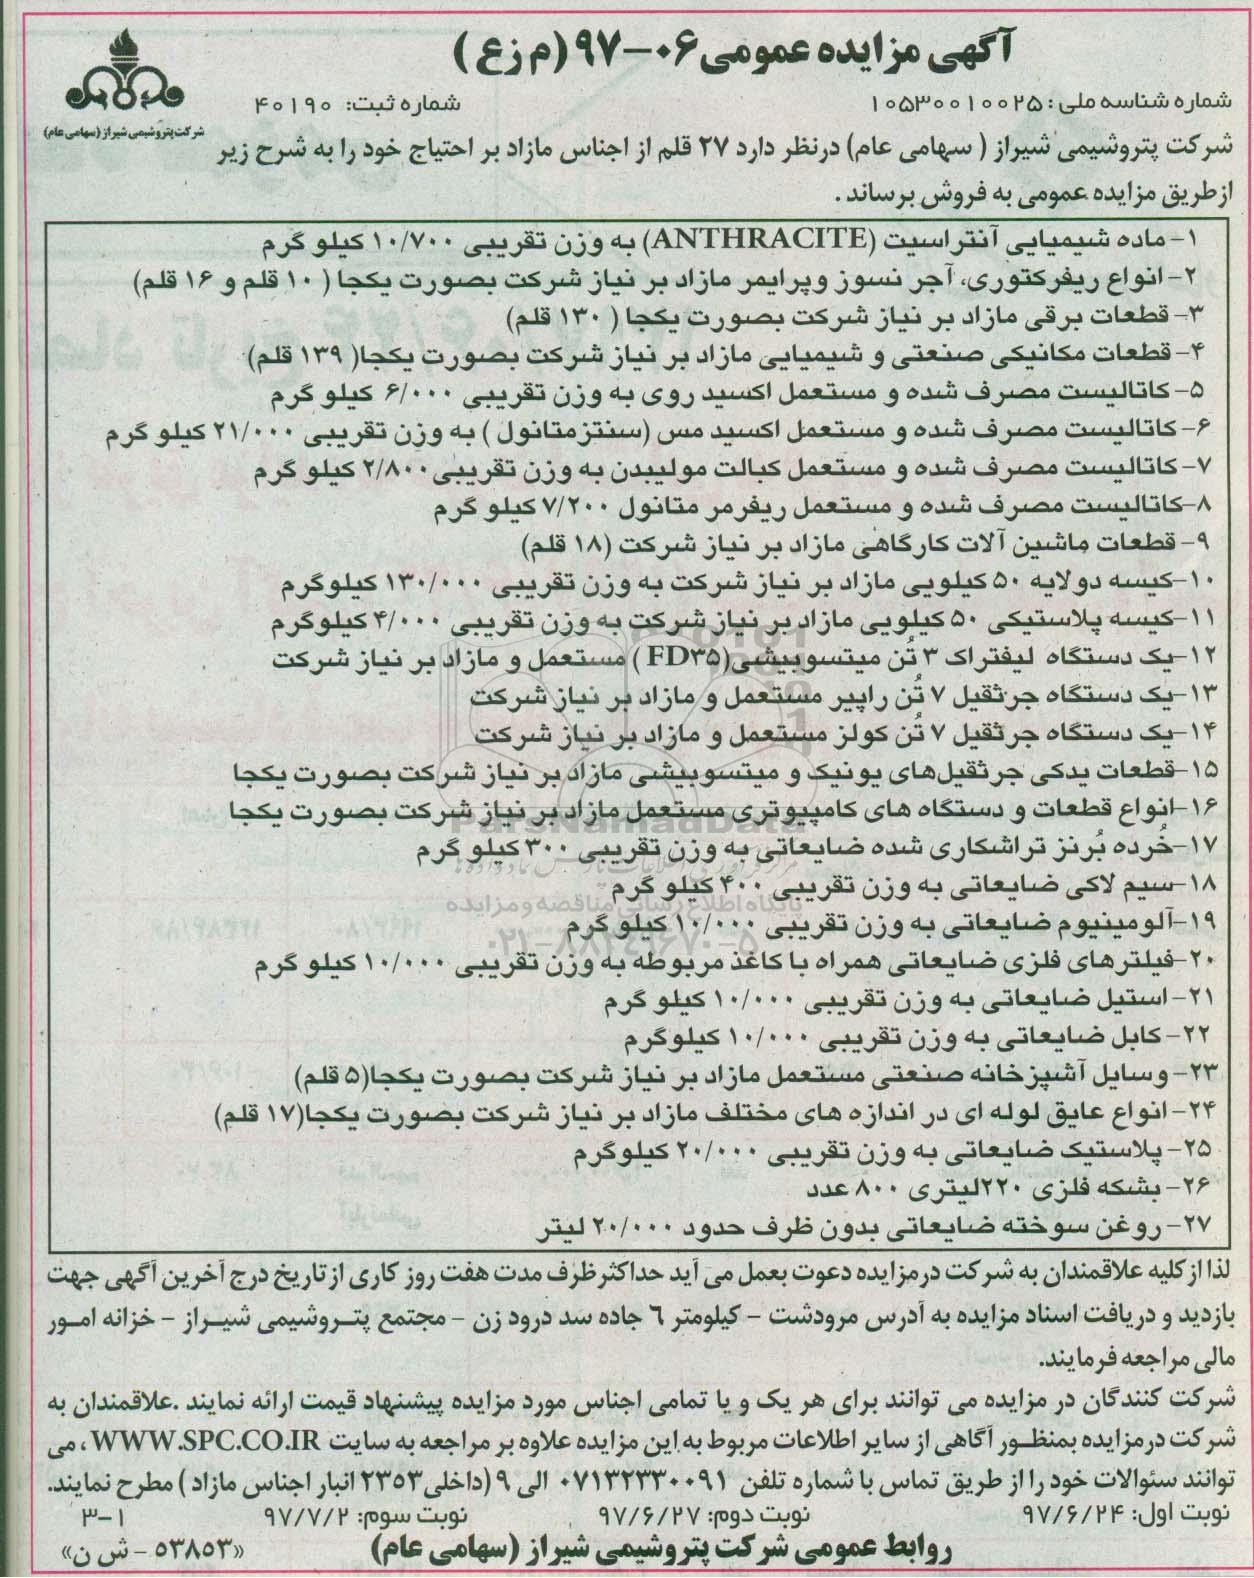 آگهی مزایده عمومی ۰۶-۹۷ (م زع)
شرکت پتروشیمی شیراز (سهامی عام)
شماره شناسه ملی: ۱۰۵۳۰۰۱۰۰۲۵
شماره ثبت: ۴۰۱۹۰
شرکت پتروشیمی شیراز ( سهامی عام) درنظر دارد ۲۷ قلم از اجناس مازاد بر احتیاج خود را به شرح زیر
ازطریق مزایده عمومی به فروش برساند .
۱- ماده شیمیایی آنتراسیت (ANTHRACITE) به وزن تقریبی ۱۰/۷۰۰ کیلو گرم
۲- انواع ریفرکتوری، آجر نسوز وپرایمر مازاد بر نیاز شرکت بصورت یکجا ( ۱۰ قلم و ۱۶ قلم)
۳- قطعات برقی مازاد بر نیاز شرکت بصورت یکجا ( ۱۳۰ قلم)
۴- قطعات مکانیکی صنعتی و شیمیایی مازاد بر نیاز شرکت بصورت یکجا( ۱۳۹ قلم)
۵- کاتالیست مصرف شده و مستعمل اکسید روی به وزن تقریبی ۶/۰۰۰ کیلو گرم
۶- کاتالیست مصرف شده و مستعمل اکسید مس (سنتزمتانول ) به وزن تقریبی ۲۱/۰۰۰ کیلو گرم
۷- کاتالیست مصرف شده و مستعمل کبالت مولیبدن به وزن تقریبی۲/۸۰۰ کیلو گرم
۸-کاتالیست مصرف شده و مستعمل ریفرمر متانول ۷/۲۰۰ کیلو گرم
۹- قطعات ماشین آلات کارگاهی مازاد بر نیاز شرکت (۱۸ قلم)
۱۰-کیسه دولایه ۵۰ کیلویی مازاد بر نیاز شرکت به وزن تقریبی ۱۳۰/۰۰۰ کیلوگرم
۱۱-کیسه پلاستیکی ۵۰ کیلویی مازاد بر نیاز شرکت به وزن تقریبی ۴/۰۰۰ کیلوگرم
۱۲-یک دستگاه لیفتراک ۳ تُن میتسوبیشی(FD۳۵ ) مستعمل و مازاد بر نیاز شرکت
۱۳-یک دستگاه جرثقیل ۷ تُن راپیر مستعمل و مازاد بر نیاز شرکت
۱۴-یک دستگاه جرثقیل ۷ تُن کولز مستعمل و مازاد بر نیاز شرکت
۱۵-قطعات یدکی جرثقیل‌های یونیک و میتسوبیشی مازاد بر نیاز شرکت بصورت یکجا
۱۶-انواع قطعات و دستگاه های کامپیوتری مستعمل مازاد بر نیاز شرکت بصورت یکجا
ParsNamadData
۱۷-خُرده بُرنز تراشکاری شده ضایعاتی به وزن تقریبی ۳۰۰ کیلو گرم
۱۸-سیم لاکی ضایعاتی به وزن تقریبی ۴۰۰ کیلو گرم
پایگاه اطلاع رسانی مناقصه و مزایده
۱۹-آلومینیوم ضایعاتی به وزن تقریبی ۱۰/۰۰۰ کیلو گرم
۰۲۱-۸۸۳۴۹۶۷۰-۵
۲۰-فیلترهای فلزی ضایعاتی همراه با کاغذ مربوطه به وزن تقریبی ۱۰/۰۰۰ کیلو گرم
۲۱- استیل ضایعاتی به وزن تقریبی ۱۰/۰۰۰ کیلو گرم
۲۲- کابل ضایعاتی به وزن تقریبی ۱۰/۰۰۰ کیلوگرم
۲۳- وسایل آشپزخانه صنعتی مستعمل مازاد بر نیاز شرکت بصورت یکجا(۵ قلم)
۲۴- انواع عایق لوله ای در اندازه های مختلف مازاد بر نیاز شرکت بصورت یکجا(۱۷ قلم)
۲۵- پلاستیک ضایعاتی به وزن تقریبی ۲۰/۰۰۰ کیلوگرم
۲۶- بشکه فلزی ۲۲۰لیتری ۸۰۰ عدد
۲۷- روغن سوخته ضایعاتی بدون ظرف حدود ۲۰/۰۰۰ لیتر
لذا از کلیه علاقمندان به شرکت درمزایده دعوت بعمل می آید حداکثرظرف مدت هفت روز کاری از تاریخ درج آخرین آگهی جهت
بازدید و دریافت اسناد مزایده به آدرس مرودشت - کیلومتر ٦ جاده سد درود زن - مجتمع پتروشیمی شیراز - خزانه امور
مالی مراجعه فرمایند.
شرکت کنندگان در مزایده می توانند برای هر یک و یا تمامی اجناس مورد مزایده پیشنهاد قیمت ارائه نمایند .علاقمندان به
شرکت درمزایده بمنظور آگاهی از سایر اطلاعات مربوط به این مزایده علاوه بر مراجعه به سایت WWW.SPC.CO.IR ، می
توانند سئوالات خود را از طریق تماس با شماره تلفن ۰۷۱۳۲۳۳۰۰۹۱ الی ۹ (داخلی ۲۳۵۳ انبار اجناس مازاد ) مطرح نمایند.
نوبت اول: ۹۷/۶/۲۴ نوبت دوم: ۹۷/۶/۲۷ نوبت سوم: ۹۷/۷/۲ ۳-۱
روابط عمومی شرکت پتروشیمی شیراز (سهامی عام)
«۵۳۸۵۳ - ش ن»